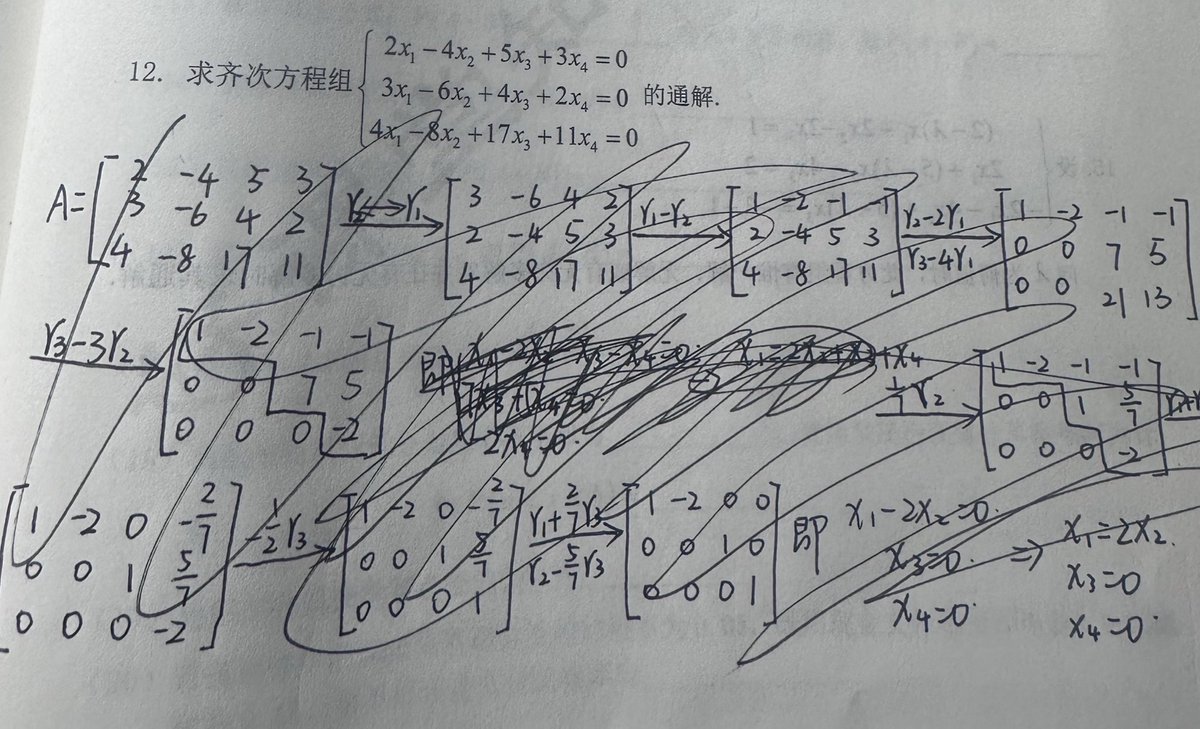 12. 求齐次方程组
2x₁ − 4x₂ + 5x₃ + 3x₄ = 0
3x₁ − 6x₂ + 4x₃ + 2x₄ = 0 的通解.
4x₁ − 8x₂ + 17x₃ + 11x₄ = 0
A= [2 -4 5 3; 3 -6 4 2; 4 -8 17 11] r₂↔r₁ [3 -6 4 2; 2 -4 5 3; 4 -8 17 11] r₁-r₂ [1 -2 -1 -1; 2 -4 5 3; 4 -8 17 11] r₂-2r₁ r₃-4r₁ [1 -2 -1 -1; 0 0 7 5; 0 0 21 13]
r₃-3r₂ [1 -2 -1 -1; 0 0 7 5; 0 0 0 -2] 即 x₁-2x₂ x₃-x₄=0 x₁=2x₂+x₃+x₄ 2x₄=0 1/7 r₂ [1 -2 -1 -1; 0 0 1 5/7; 0 0 0 -2]
[1 -2 0 -2/7; 0 0 1 5/7; 0 0 0 -2] -1/2 r₃ [1 -2 0 -2/7; 0 0 1 5/7; 0 0 0 1] r₁+2/7 r₃ r₂-5/7 r₃ [1 -2 0 0; 0 0 1 0; 0 0 0 1] 即 x₁-2x₂=0 ⇒ x₁=2x₂
x₃=0 x₃=0
x₄=0 x₄=0